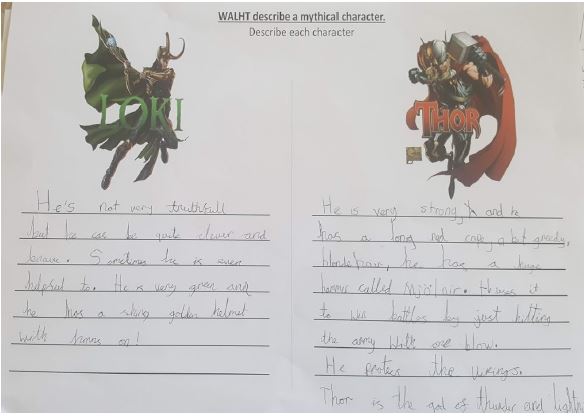 WALHT describe a mythical character.
Describe each character
LOKI
He's not very truthfull
but he can be quite clever and
brave. Sometimes he is even
helpful to. He is very green and
he has a strong golden helmet
with horns on!
THOR
He is very strong and he
has a long red cape, a bit greedy,
blonde hair, he has a huge
hammer called Mjölnir. He uses it
to win battles by just hitting
the army with one blow.
He protects the vikings.
Thor is the god of thunder and